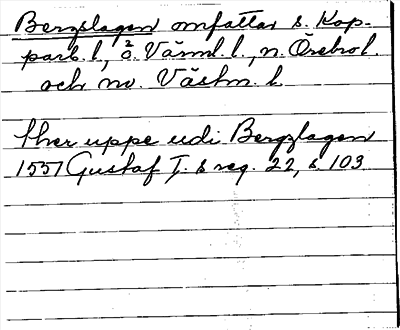 Bergslagen omfattar s. Kop-
parb. l., ö. Värml. l., n. Örebro l.
och nv. Västm. l.
ther uppe udi Bergzlagen
1551 Gustaf I:s reg. 22, s. 103